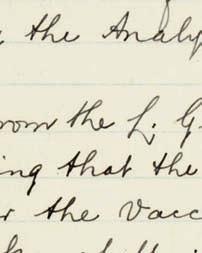 the Analy
from the L. G
ing that the
the Vacc